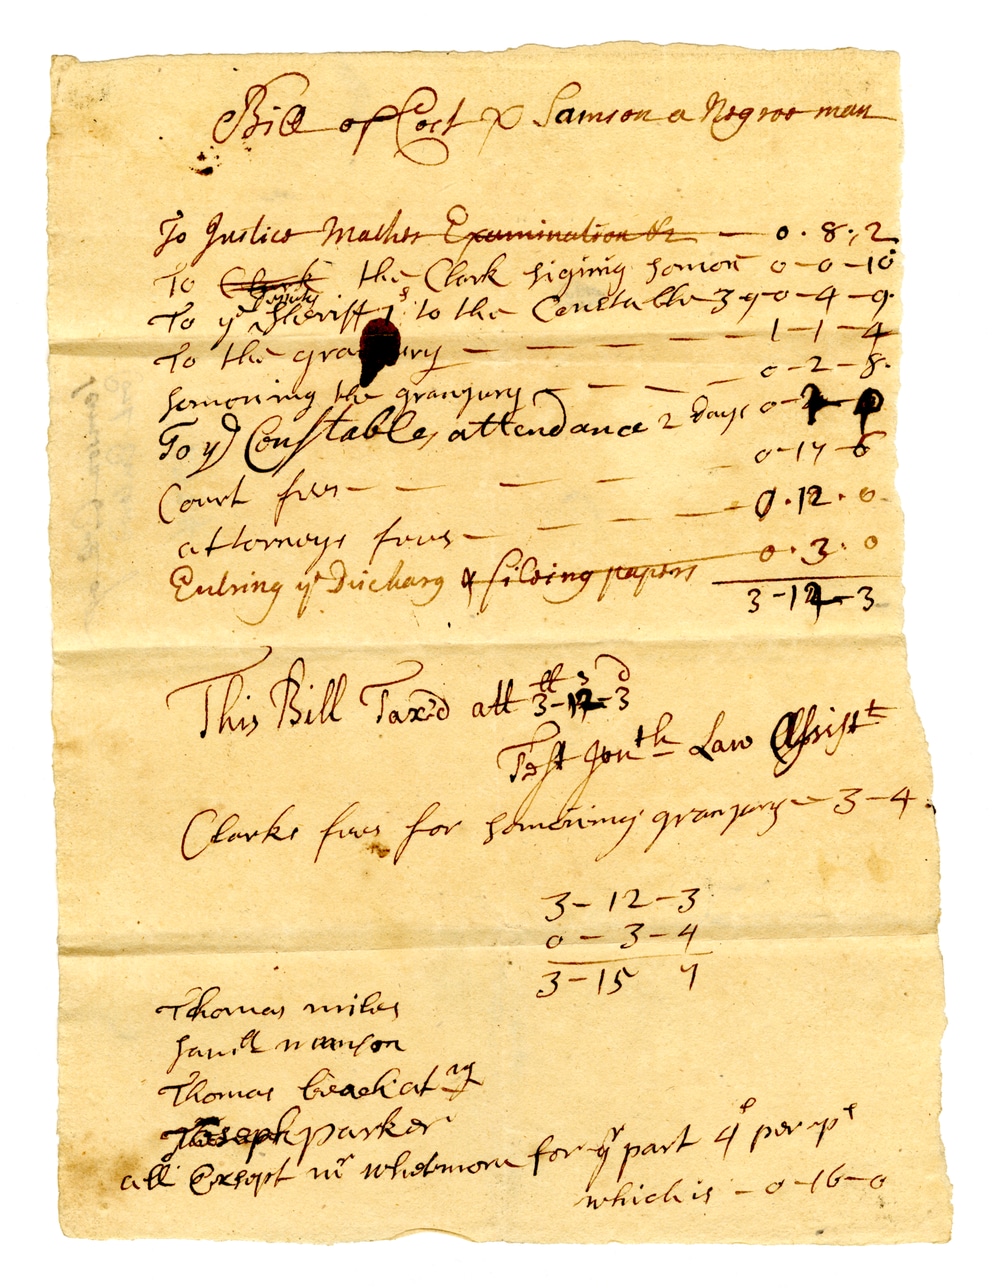 Bill of Cost P Samson a Negroe man
To Justice Mather Examination &c — 0 . 8 ; 2
To Clark the Clark signing somon 0 - 0 - 10
To ye deputy Sheriff 1s to the Constable 3-9 0 - 4 - 9.
To the granjury — — — — — 1 - 1 - 4
somoning the granjury — — — — 0 - 2 - 8.
To ye Constables attendance 2 days 0 -
Court fees — — — — — 0 - 17 - 6
attorneys fees — — — — — 0 . 12 . 0
Entring ye Discharg & fileing papers 0 . 3 . 0
3 - 12 - 3
This Bill Tax'd att 3 - 12 - 3
Test Jonth Law Assistt
Clarks fees for somoning granjury — 3 - 4
3 - 12 - 3
0 - 3 - 4
3 - 15 7
Thomas miles
Samll munson
Thomas beach
Joseph parker
all Exsept mr whetmore for yr part 4s per ps
which is - 0 - 16 - 0